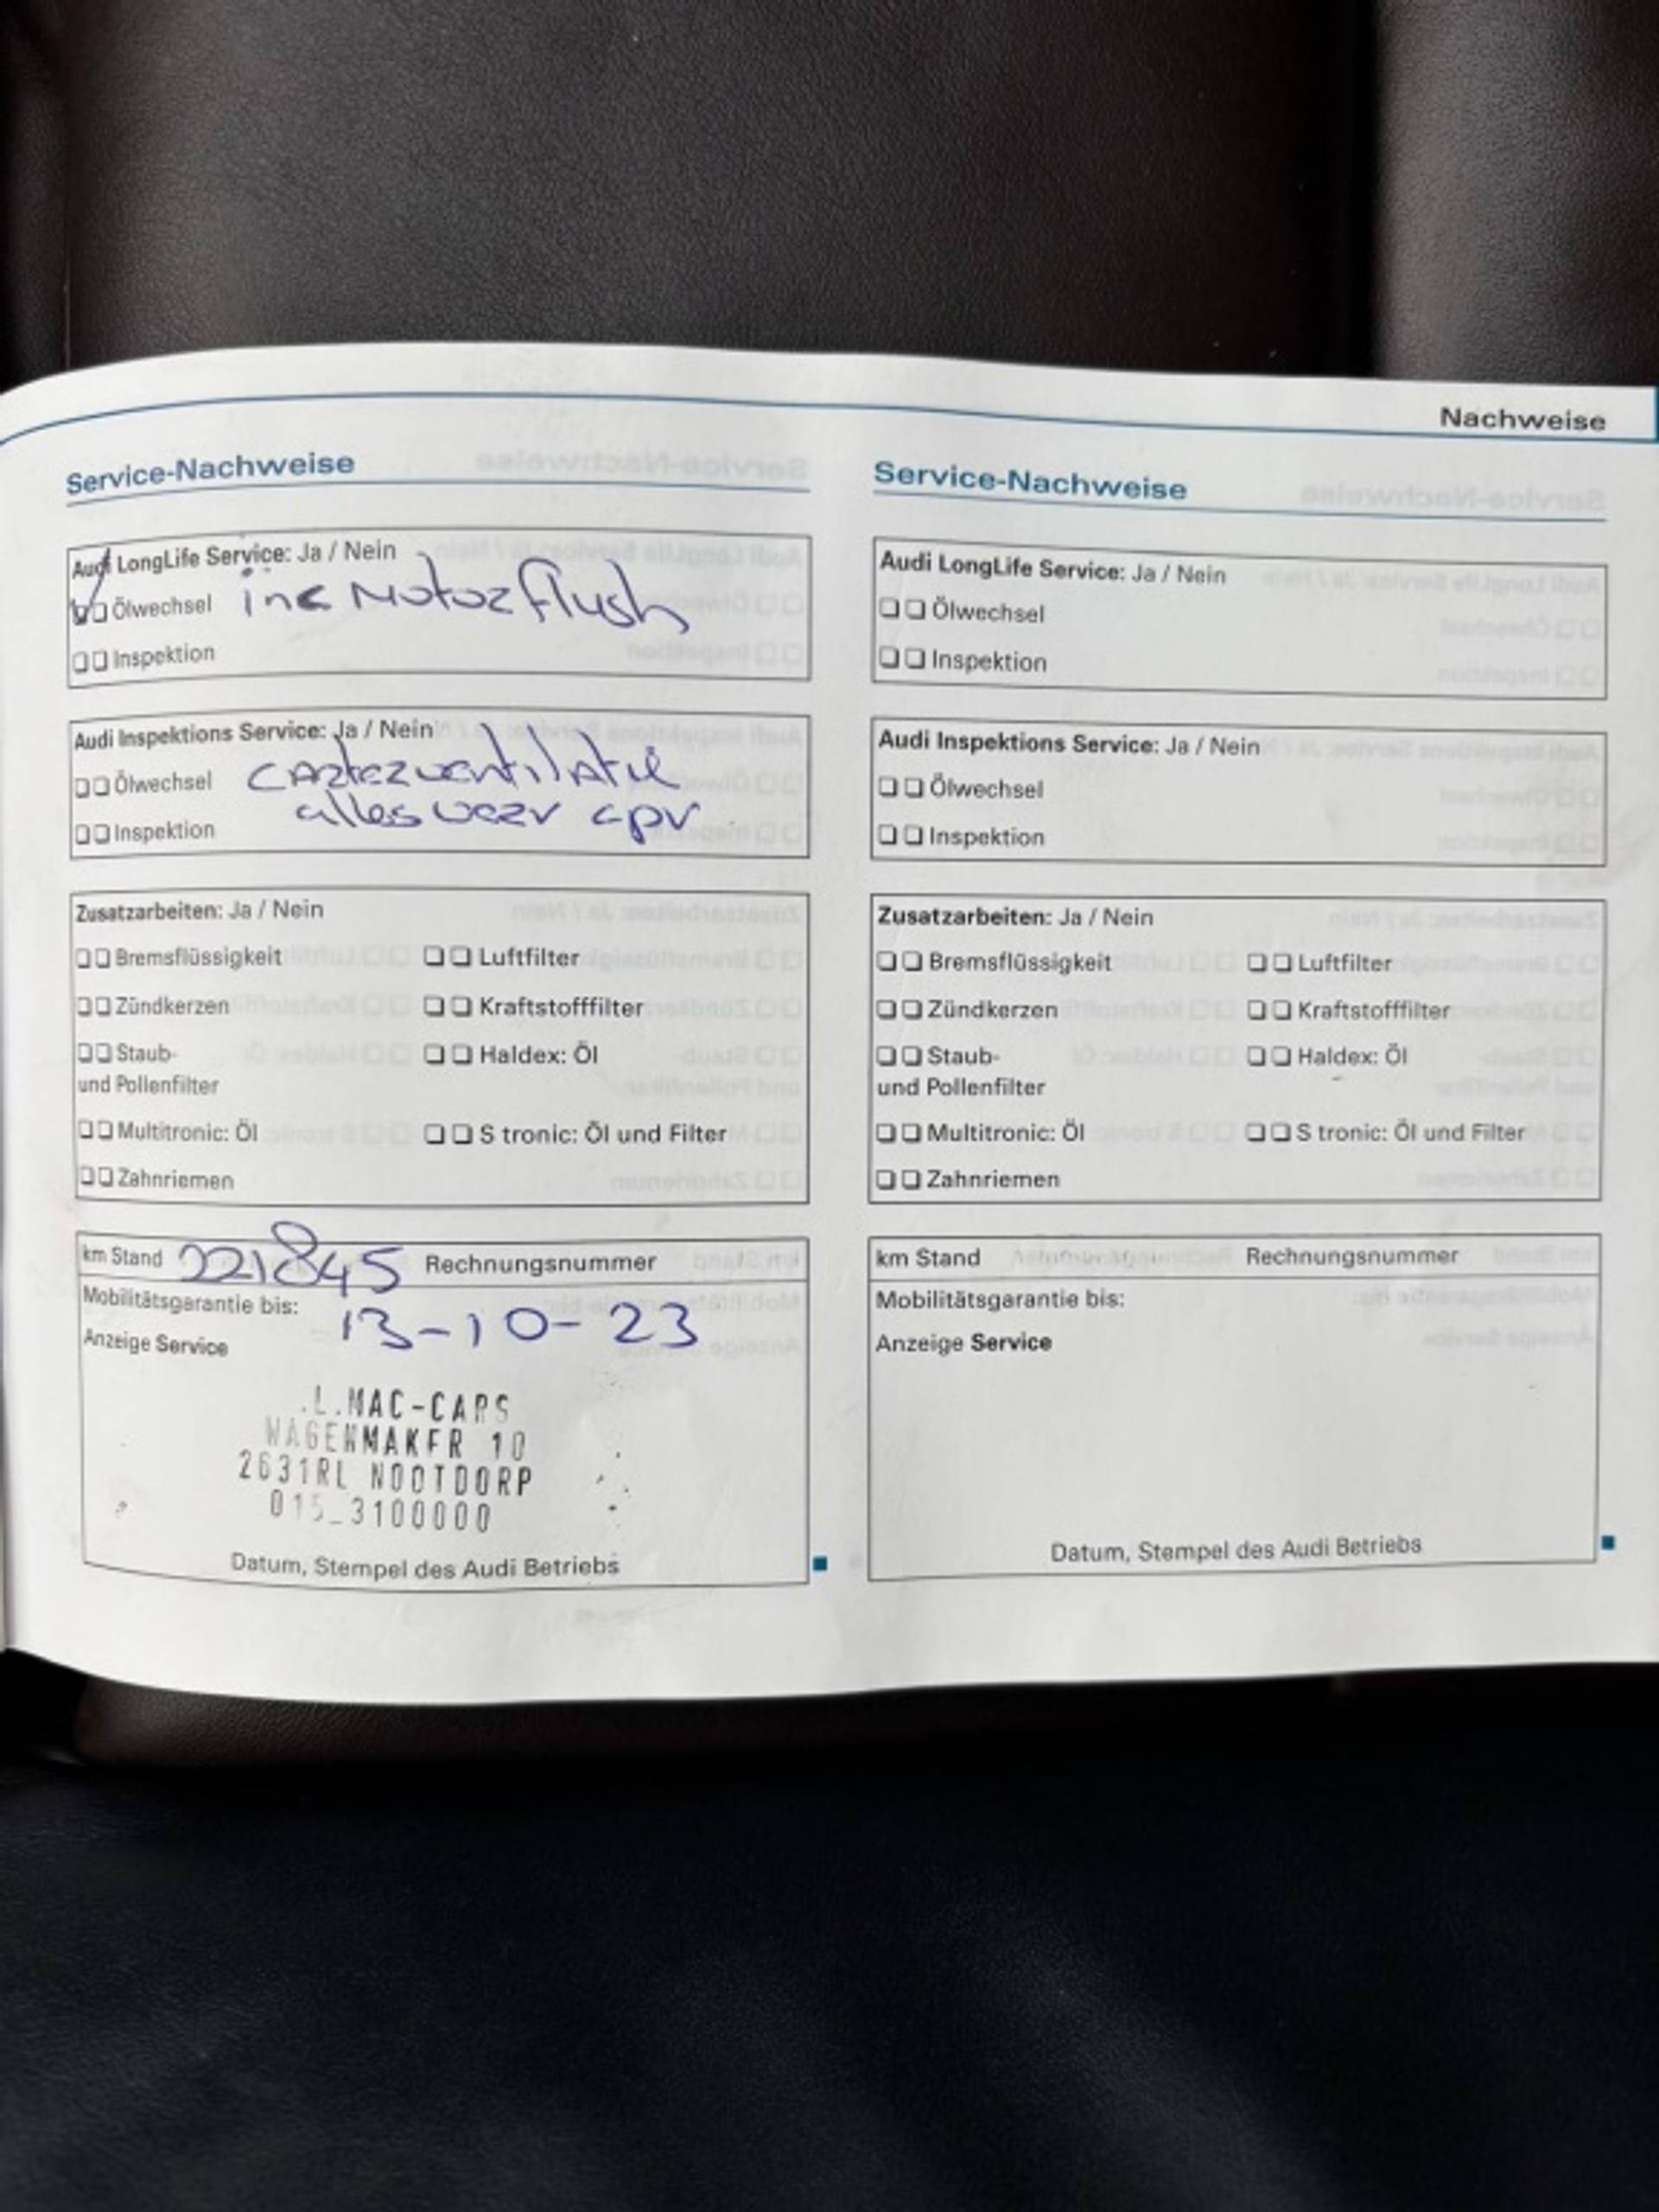 Nachweise
Service-Nachweise
Audi LongLife Service: Ja / Nein
Ölwechsel inc Motorflush
Inspektion
Audi Inspektions Service: Ja / Nein
Ölwechsel carterventilatie
alles weer
Inspektion
Zusatzarbeiten: Ja / Nein
Bremsflüssigkeit Luftfilter
Zündkerzen Kraftstofffilter
Staub- Haldex: Öl
und Pollenfilter
Multitronic: Öl S tronic: Öl und Filter
Zahnriemen
km Stand 221845 Rechnungsnummer
Mobilitätsgarantie bis: 13-10-23
Anzeige Service
.L.MAC-CARS
WAGENMAKER 10
2631RL NOOTDORP
015_3100000
Datum, Stempel des Audi Betriebs
Service-Nachweise
Audi LongLife Service: Ja / Nein
Ölwechsel
Inspektion
Audi Inspektions Service: Ja / Nein
Ölwechsel
Inspektion
Zusatzarbeiten: Ja / Nein
Bremsflüssigkeit Luftfilter
Zündkerzen Kraftstofffilter
Staub- Haldex: Öl
und Pollenfilter
Multitronic: Öl S tronic: Öl und Filter
Zahnriemen
km Stand Rechnungsnummer
Mobilitätsgarantie bis:
Anzeige Service
Datum, Stempel des Audi Betriebs